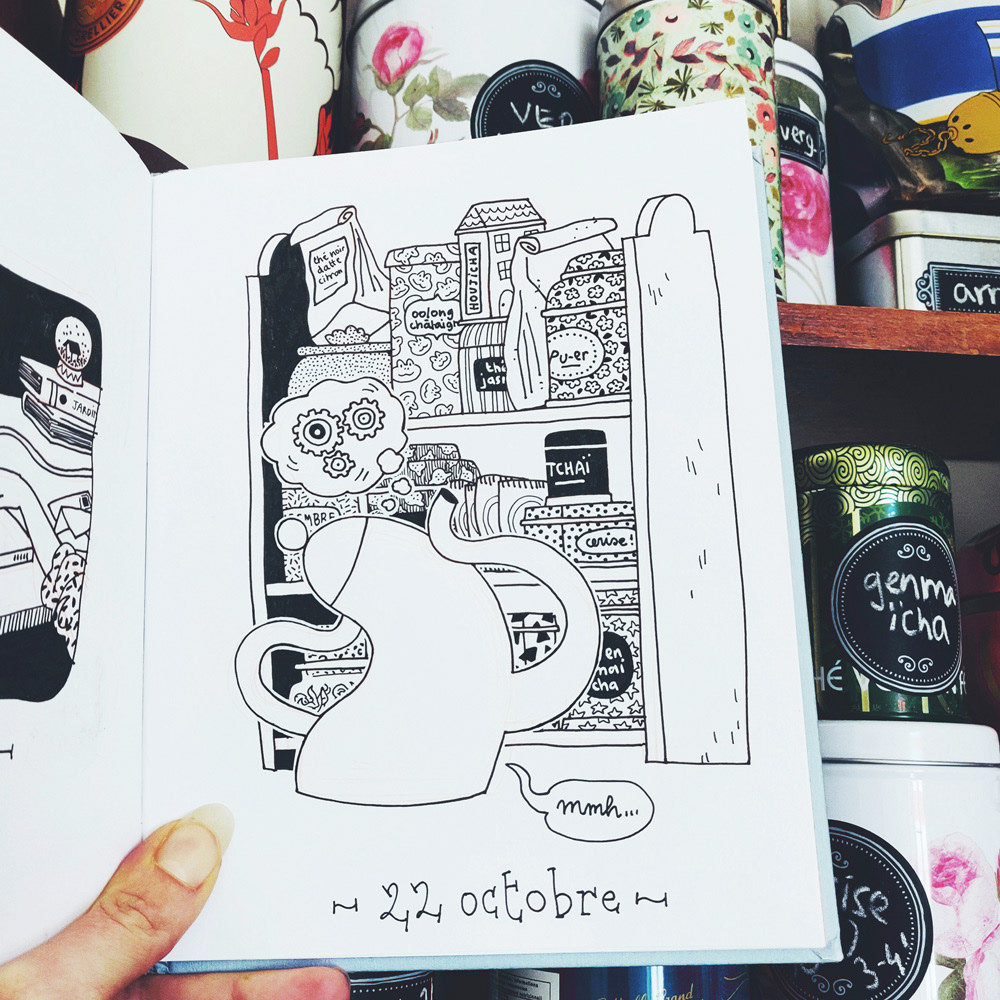 VER
verg.
thé noir
datte
citron
HOUJICHA
oolong
chataign
PU-er
thé
jasm
TCHAÏ
MBRE
cerise!
en
mai
cha
JARDIN
mmh...
~ 22 octobre ~
arm
genma
ïcha
HÉ V
rise
3-4'